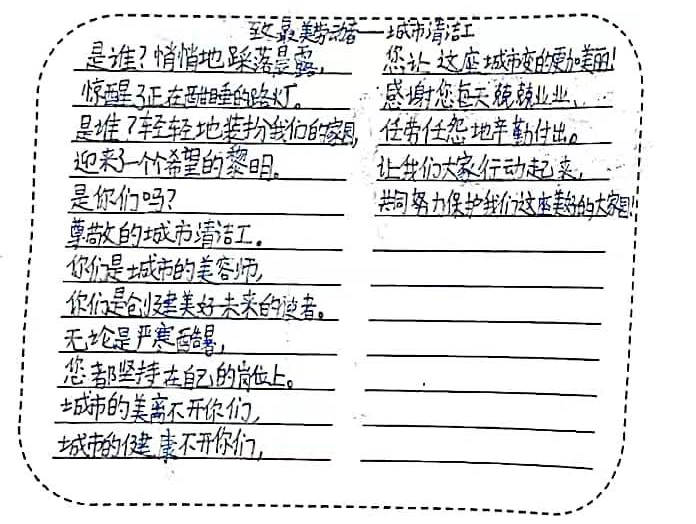 致最美劳动者——城市清洁工
是谁？悄悄地踩落晨露，
惊醒了正在酣睡的路灯。
是谁？轻轻地装扮我们的家园，
迎来了一个个希望的黎明。
是你们吗？
尊敬的城市清洁工。
你们是城市的美容师，
你们是创建美好未来的使者。
无论是严寒酷暑，
您都坚持在自己的岗位上。
城市的美离不开你们，
城市的健康不开你们，
您让这座城市变的更加美丽！
感谢您每天兢兢业业、
任劳任怨地辛勤付出。
让我们大家行动起来，
共同努力保护我们这座美好的大家园！